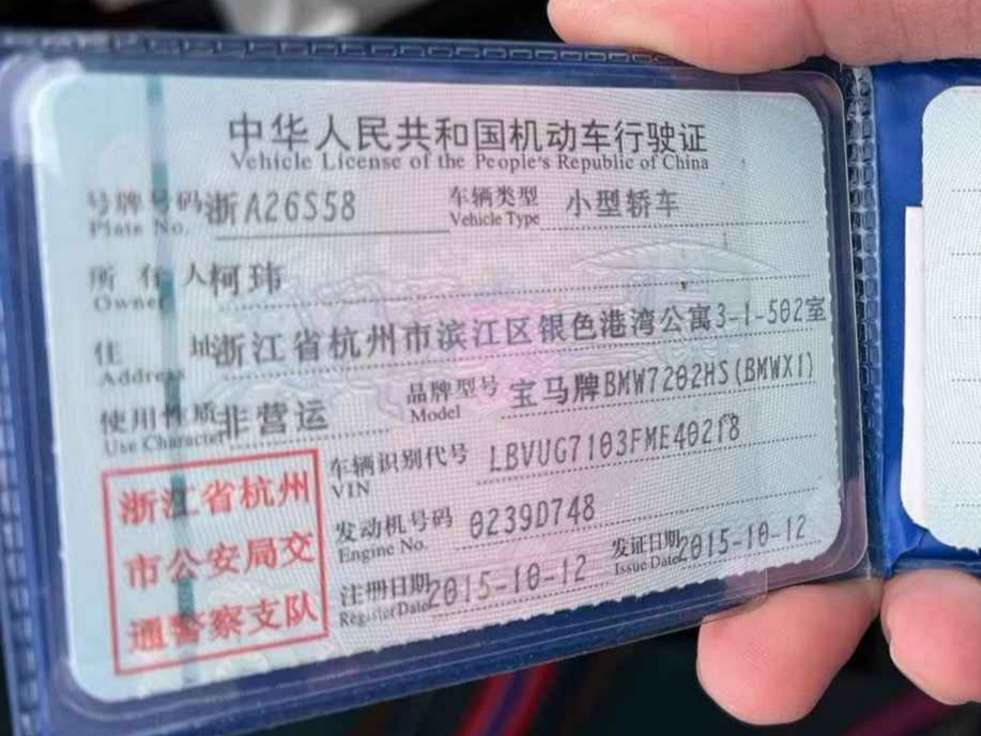 中华人民共和国机动车行驶证
Vehicle License of the People's Republic of China
号牌号码 浙A26S58 车辆类型 小型轿车
Plate No. Vehicle Type
所有人 柯玮
Owner
住址 浙江省杭州市滨江区银色港湾公寓3-1-502室
Address
使用性质 非营运 品牌型号 宝马牌BMW7202HS(BMWX1)
Use Character Model
车辆识别代号 LBVUG7103FME40218
VIN
发动机号码 0239D748
Engine No.
注册日期 2015-10-12 发证日期 2015-10-12
Register Date Issue Date
浙江省杭州
市公安局交
通警察支队